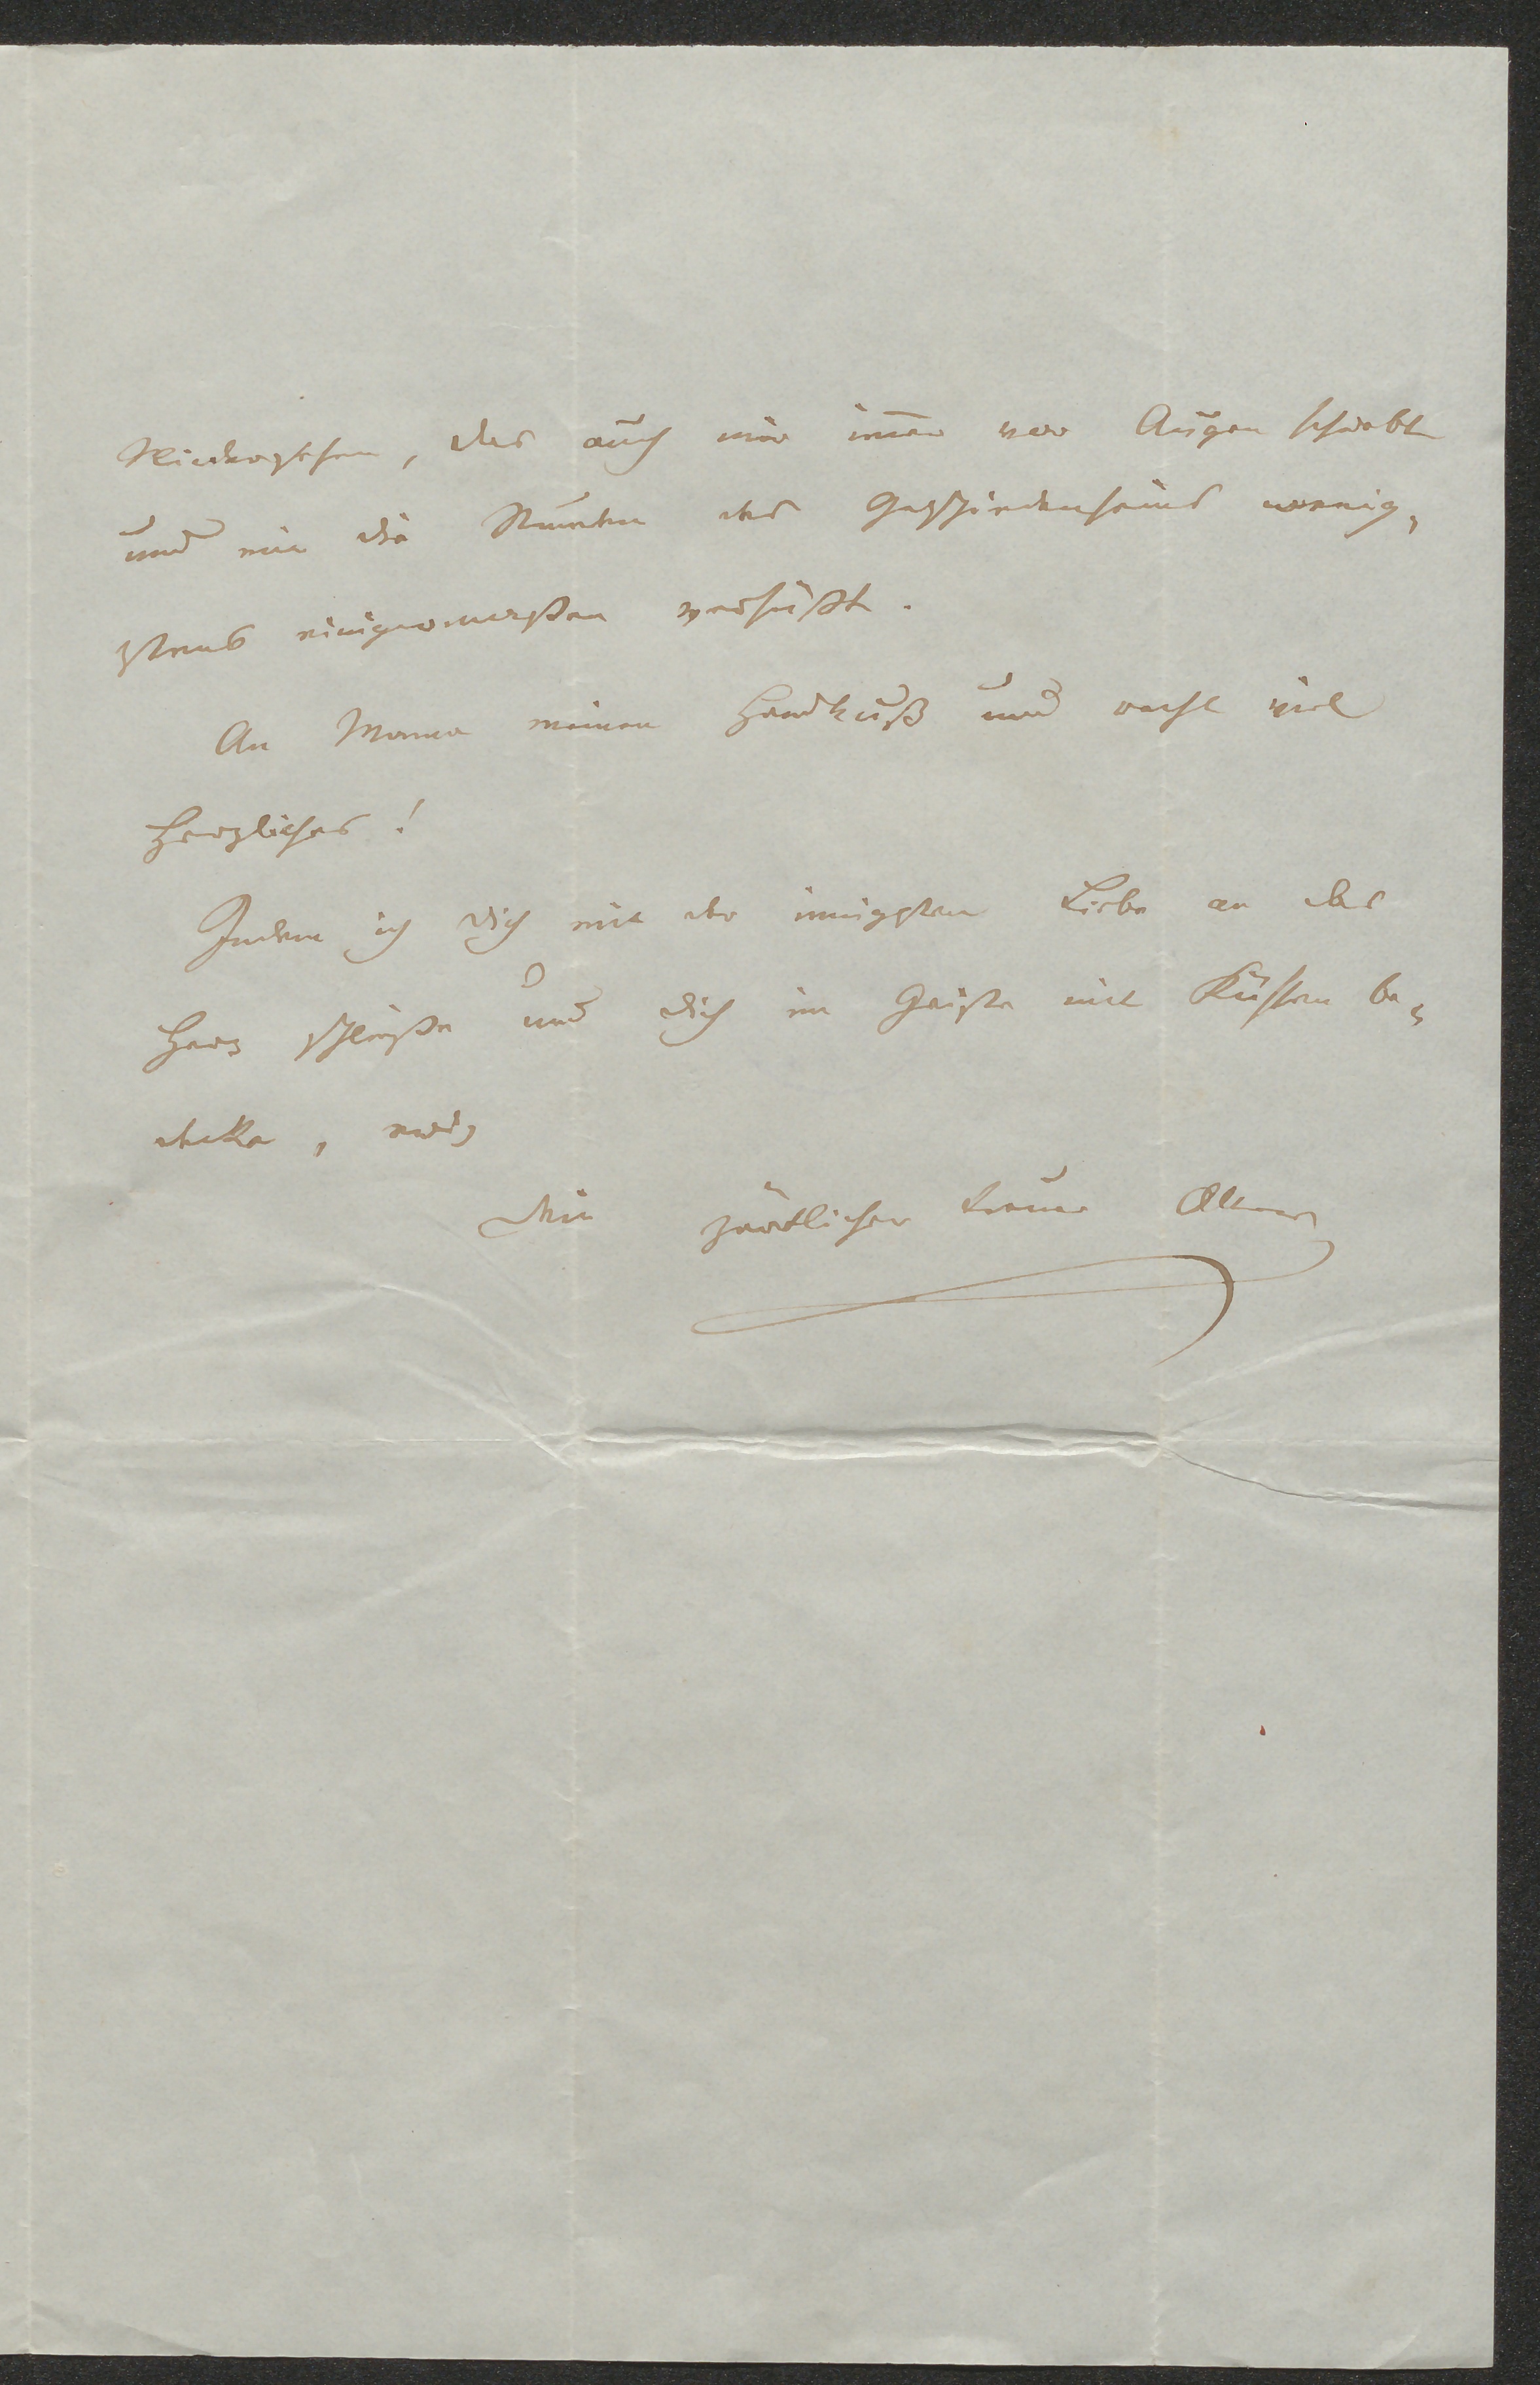 Wiedersehen, das auch mir im̅er vor Augen schwebt
und mir die Stunden des Geschiedenseins wenig¬
stens einigermaßen versüßt.
An Mama meinen Handkuß und recht viel
Herzliches!
Indem ich Dich mit der innigsten Liebe an das
Herz schließe und Dich im Geiste mit Küssen be¬
decke, ewig
Dein zärtlicher treuer